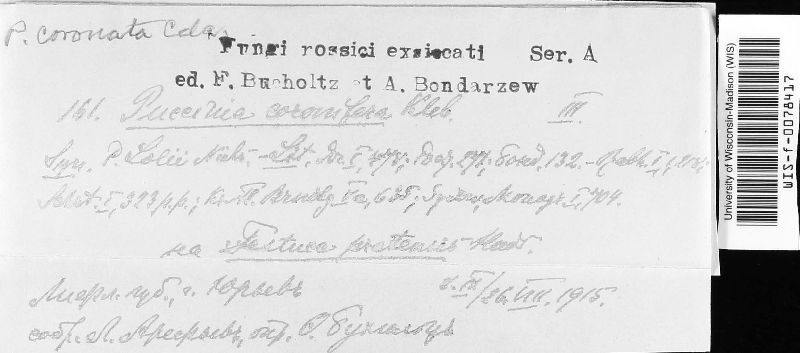 P. coronata Cda.
Fungi rossici exsiccati Ser. A
ed. F. Bucholtz et A. Bondarzew
161. Puccinia coronifera Kleb. III
Syn. P. Lolii Niels. - Lit. I, 132. I,
I, 323 p.p.; Kr. Fl. Brndbg Va, 635; Sydow, Monogr. I, 704.
на Festuca pratensis Huds.
Лифл. губ., г. Юрьевъ 26. VIII. 1915.
собр. Л. опр. Ѳ. Бухгольцъ
University of Wisconsin-Madison (WIS)
WIS-f-0078417